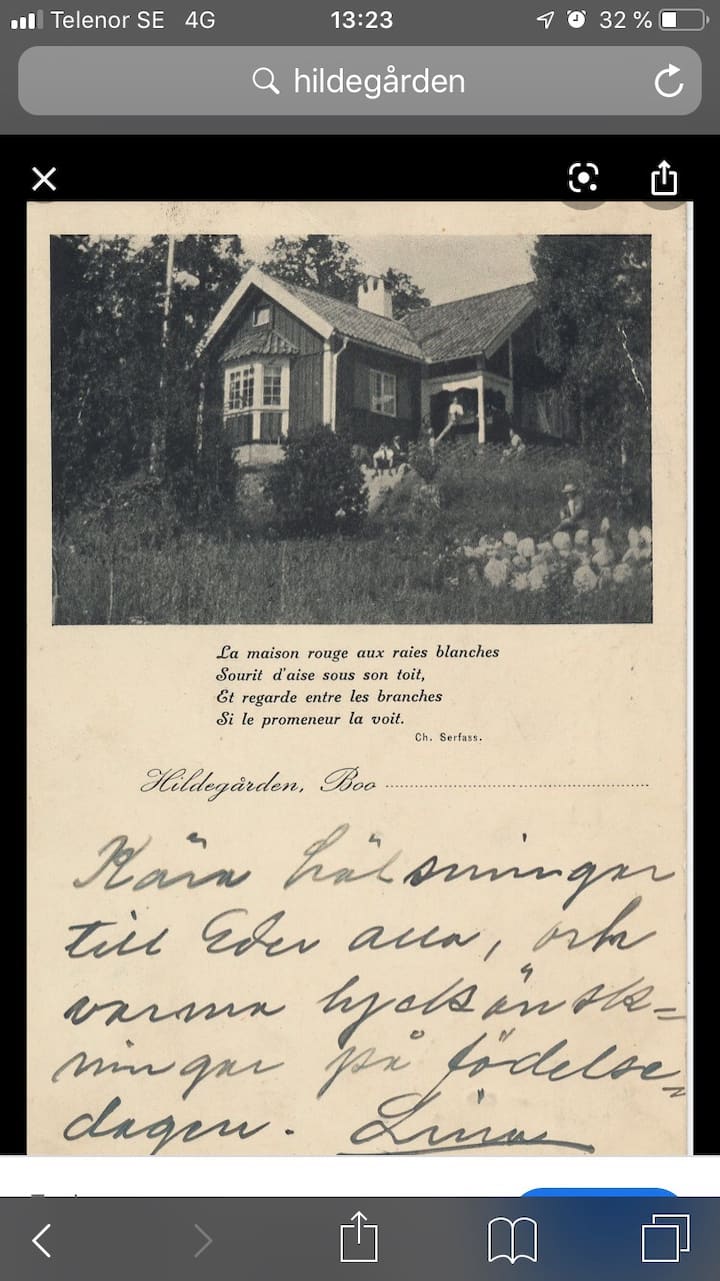 Telenor SE 4G 13:23 32 %
hildegården
La maison rouge aux raies blanches
Sourit d'aise sous son toit,
Et regarde entre les branches
Si le promeneur la voit.
Ch. Serfass.
Hildegården, Boo
Kära hälsningar
till Eder alla, och
varma lyckönsk=
ningar på födelse=
dagen. Lina